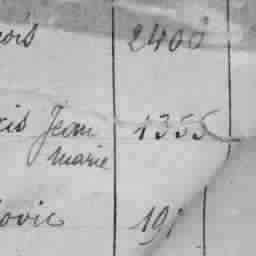 ois 2400
cis Jean 1355
Marie
ovic 191